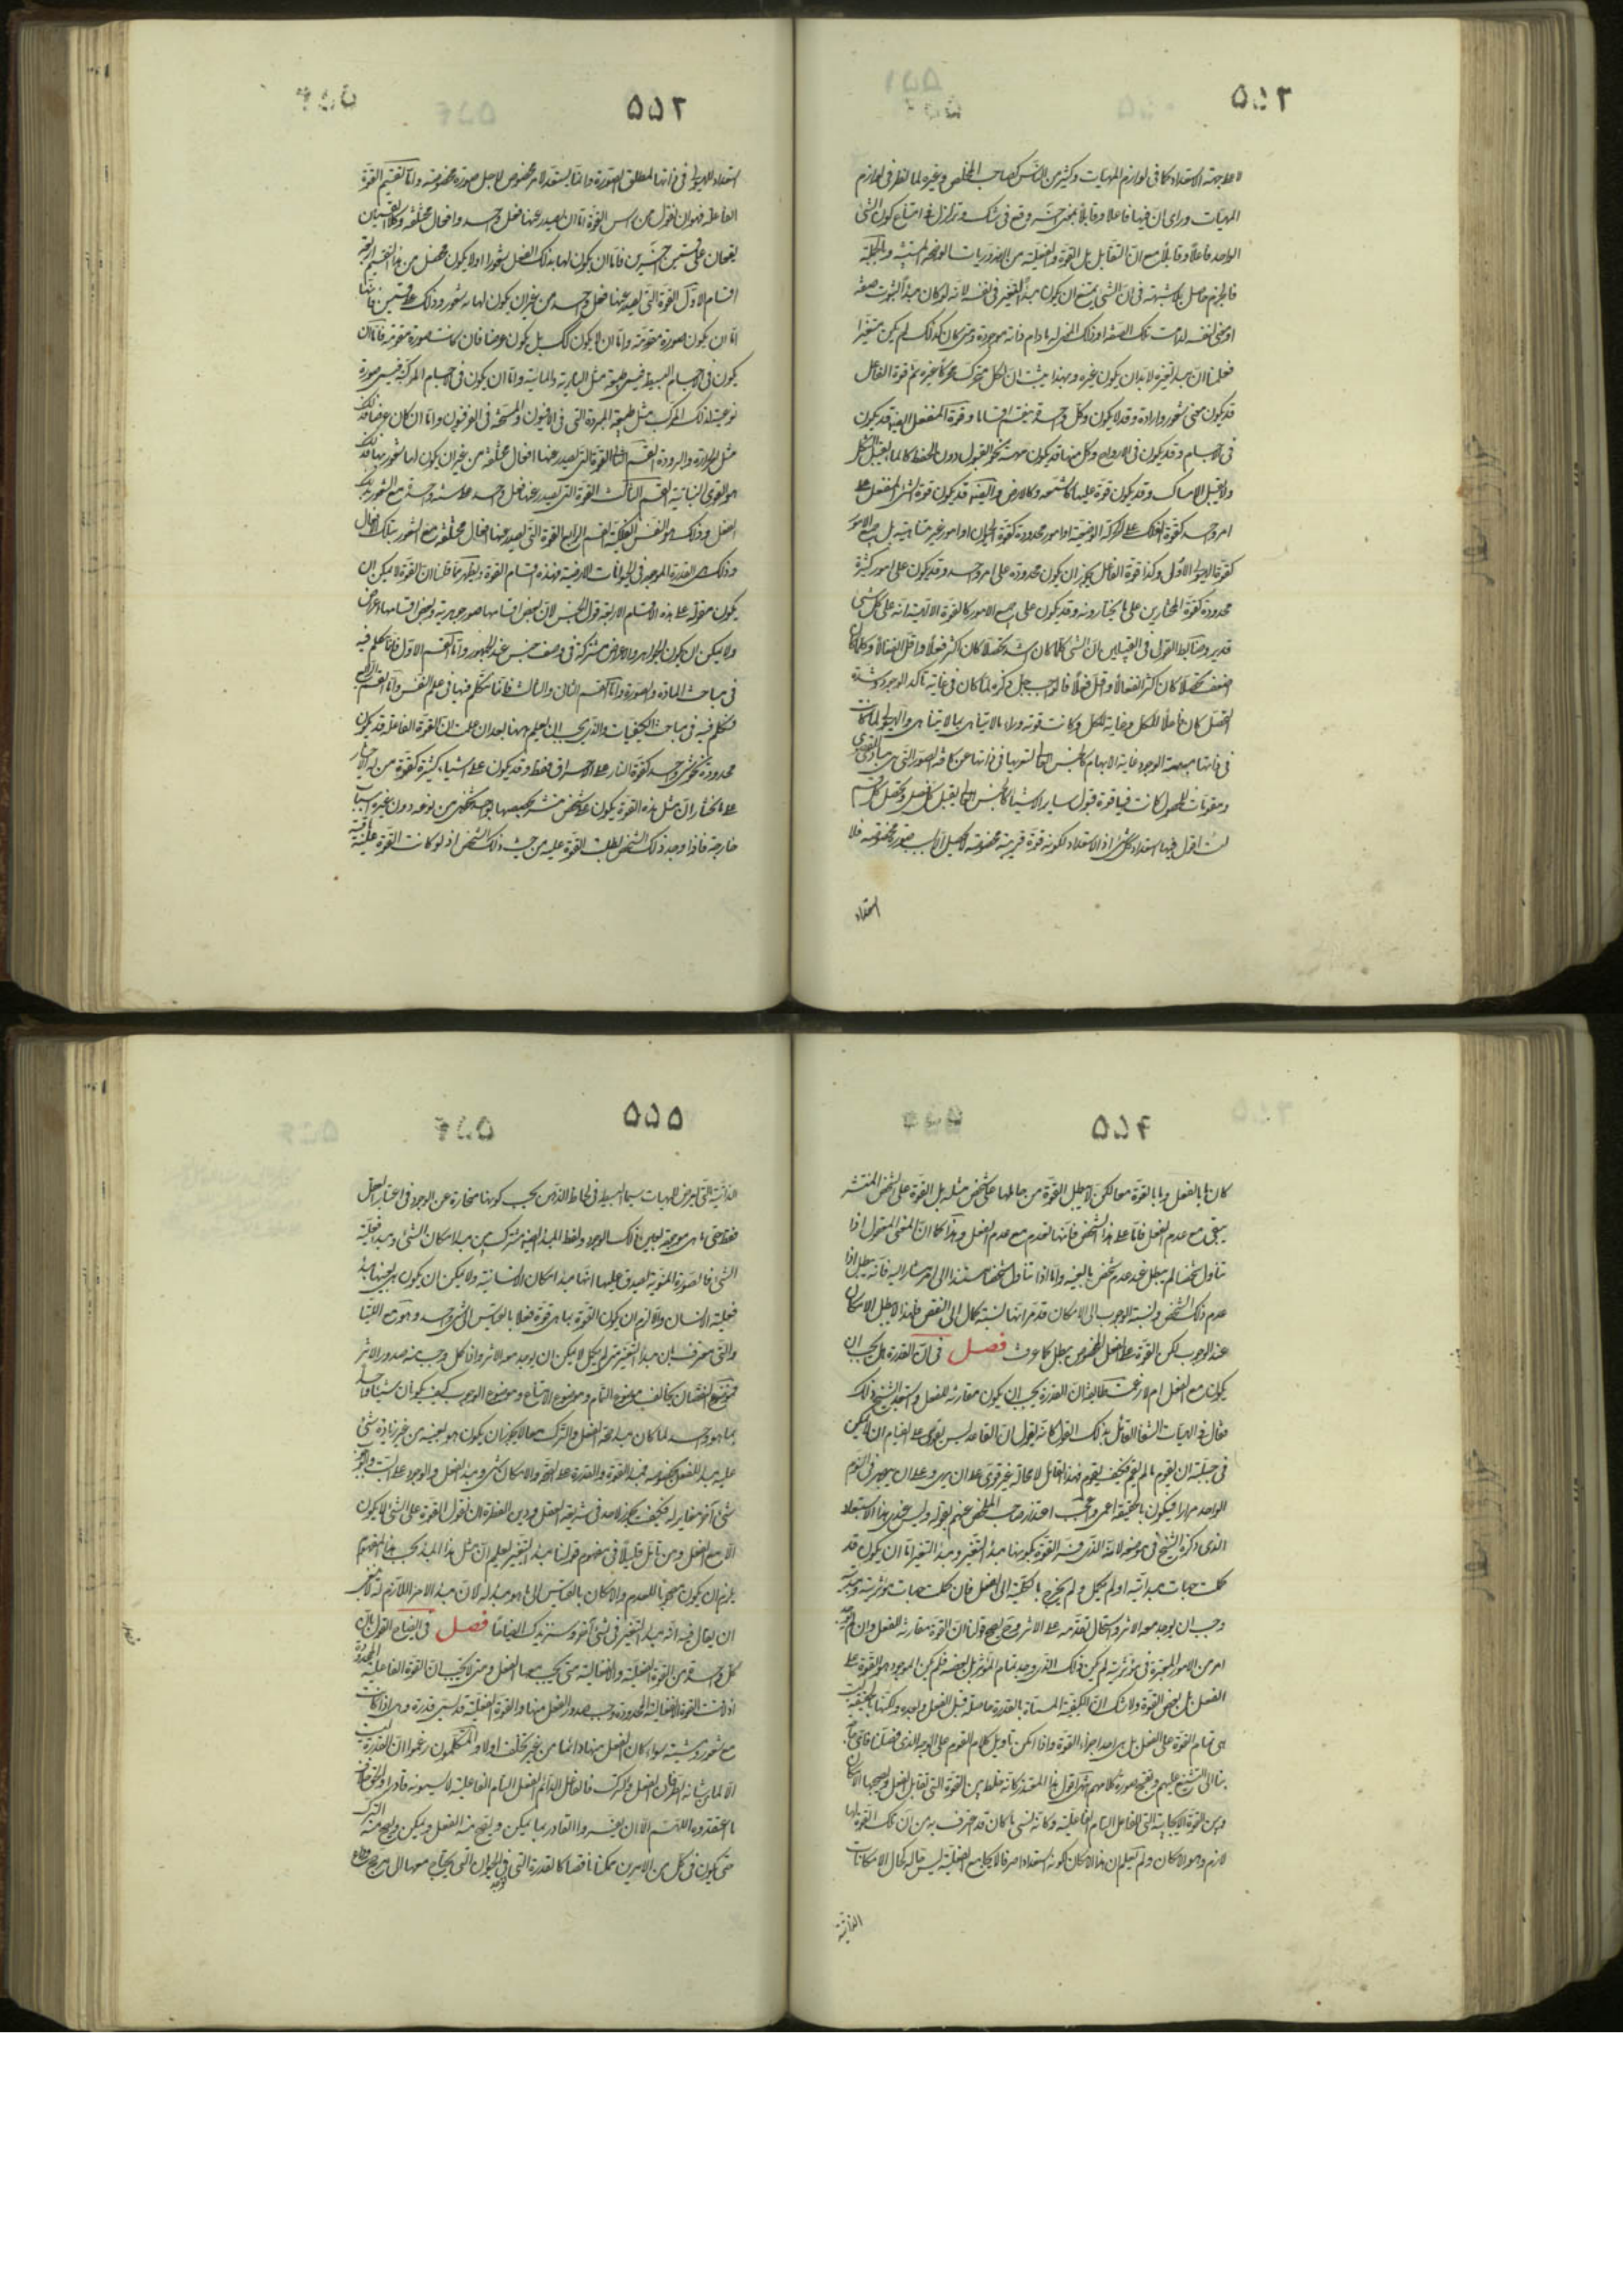 ٥٥٢
لا على جهة الاستعداد كما فى لوازم المهيات وكثير من الناس كصاحب الملخص وغيره لما نظر فى لوازم
المهيات وراى ان فيها فاعلا وقابلا بمعنى حسبه وقع فى شك وتزلزل فى امتناع كون الشى
الواحد فاعلا وقابلا مع ان التقابل بل القوة والفعلية من الضروريات الواضحة
فالجزم حاصل بلا شبهة فى ان الشى يمتنع ان يكون مبدأ التغير فى نفسه لانه لو كان مبدأ لثبوت صفة
او معنى لنفسه لدامت تلك الصفة او ذلك المعنى له مادام ذاته موجودة ومتى كان كذلك لم يكن متغيرا
فعلمنا ان مبدأ تغيره لابد ان يكون غيره وبهذا يثبت ان لكل متحرك محركا غيره ثم قوة الفاعل
قد يكون معنى شعور وارادة وقد لا يكون وكل واحدة ينقسم اقساما وقوة المنفعل ايضا قد يكون
فى الاجسام وقد يكون فى الارواح وكل منها قد يكون مهية نحو القبول دون الحفظ كالماء يقبل الشكل
ولا يقبل الامساك وقد يكون قوة عليها كالشمعة وكالارض واليضا قد يكون قوة الشى المنفعل على
امر واحد كقوة الفلك على الحركة الوضعية او امور محدودة كقوة الحيوان او امور غير متناهية بل جميع الامور
كقوة الهيولى الاولى وكذا قوة الفاعل يجوز ان يكون محدودة على امر واحد وقد يكون على امور كثيرة
محدودة كقوة المختارين على ما يختارونه وقد يكون على جميع الامور كالقوة الالهية انه على كل شى
قدير وضابط القول فى القبيلين ان الشى كلما كان اشد تحصلا كان اكثر فعلا واقل انفعالا وكلما كان
اضعف تحصلا كان اكثر انفعالا واقل فعلا فالواجب جل ذكره لما كان فى غاية تأكد الوجود وشدة
التحصل كان فاعلا للكل وغاية للكل وكانت قوته وراء ما لا يتناهى بما لا يتناهى والهيولى لما كانت
فى ذاتها مبهمة الوجود غاية الابهام كالجنس العالى لتعريها فى ذاتها عن كافة الصور التى هى مبادى
ومقومات للحصول كانت فيها قوة قبول ساير الاشياء كالجنس العالى يقبل كل فصل وتحصل كل قسم
لست اقول فيها استعداد كل شى اذ الاستعداد لكونه قوة قريبة مخصوصة تحصيل لاسباب صورة مخصوصة فلا
استعداد
٥٥٣
استعداد للهيولى فى ذاتها لمطلق الصورة وانما يستعد لامر مخصوص لاجل صورة مخصوصة واما تقسيم القوة
الفاعلة فهو ان نقول من راس القوة اما ان يصدر عنها فعل واحد او افعال مختلفة وكلا القسمين
يقعان على قسمين اخريين فاما ان يكون لها بذلك الفعل شعور او لا يكون فحصل من هذا التقسيم اربعة
اقسام الاول القوة التى يصدر عنها فعل واحد من غير ان يكون لها به شعور وذلك على قسمين فانها
اما ان يكون صورة مقومة واما ان لا يكون كك بل يكون عرضا فان كانت صورة مقومة فاما ان
يكون فى الاجسام البسيطة فيسمى طبيعة مثل النارية والمائية واما ان يكون فى الاجسام المركبة فيسمى صورة
نوعية لذلك المركب مثل طبيعة المبردة التى فى الافيون والمسخنة فى الفرفيون واما ان كان عرضا فذلك
مثل الحرارة والبرودة القسم الثانى القوة التى يصدر عنها افعال مختلفة من غير ان يكون لها شعور بها فذلك
هو القوى النباتية القسم الثالث القوة التى يصدر عنها فعل واحد على سنة واحدة مع الشعور بذلك
الفعل وذلك هو النفس الفلكية القسم الرابع القوة التى يصدر عنها افعال مختلفة مع الشعور بتلك الافعال
وذلك هى القدرة الموجودة فى الحيوانات الارضية فهذه اقسام القوة ويظهر مما قلنا ان القوة لا يمكن ان
يكون مقولة على هذه الاقسام الاربعة قول الجنس لان بعض اقسامها صور جوهرية وبعض اقسامها اعراض
ولا يمكن ان يكون الجواهر والاعراض مشتركة فى وصف جنس عند الجمهور واما القسم الاول فانا نتكلم فيه
فى مباحث المادة والصورة واما القسم الثانى والثالث فانا نتكلم فيها فى علم النفس واما القسم الرابع
فنتكلم فيه فى مباحث الكيفيات والذى يجب ان يعلم ههنا بعد ان علمت ان القوة الفاعلة قد يكون
محدودة نحو شى واحد كقوة النار على الاحراق فقط وقد يكون على اشياء كثيرة كقوة من له الاختيار
على ما يختار ان مثل هذه القوة يكون على شخص منتشر يخصصها بواحد شخصى من نوعه دون غيره اسباب
خارجة فاذا وجد ذلك الشخص بطلت القوة عليه من حيث ذلك الشخص اذ لو كانت القوة عليه باقية
٥٥٤
كان ما بالفعل وما بالقوة معا لكن لا يبطل القوة من حاملها على شخص مثله بل القوة على الشخص المنتشر
يبقى مع عدم الفعل فاما على هذا الشخص فانها تنعدم مع عدم الفعل وهذا كما ان المعنى المعقول اذا
تناول شخصا لم يبطل عند عدم شخص بالعينه واما اذا تناول شخصا مستندا الى امر مشار اليه فانه يبطل اذا
عدم ذلك الشخص ونسبة الوجوب الى الامكان قد مر انها نسبة كمال الى نقص فلهذا لا يبطل الامكان
عند الوجوب لكن القوة على الفعل المخصوص يبطل كما عرفت فصل فى ان القدرة هل يجب ان
يكون مع الفعل ام لا زعمت طائفة ان القدرة يجب ان يكون مقارنة للفعل واستبعد الشيخ ذلك
فقال فى الهيات الشفا القائل بذلك القول كانه يقول ان القاعد ليس يقوى على القيام اى لا يمكن
فى جبلته ان يقوم ما لم يقم فكيف يقوم فهذا القائل لا محالة غير قوى على ان يرى وعلى ان يبصر فى اليوم
الواحد مرارا فيكون بالحقيقة اعمى واعجب اعتذار صاحب الملخص عنهم بقوله وليس عندى هذا الاستبعاد
الذى ذكره الشيخ فى موضعه لانه الذى فسر القوة بكونها مبدأ التغير ومبدأ التغير اما ان يكون قد
كملت جهات مبدائيته او لم يكمل ولم يخرج بالكلية الى الفعل فان كملت جهات مؤثرية ومبدئية
وجب ان يوجد معه الاثر واستحال تقدمه على الاثر وح يصح قولنا ان القوة مقارنة للفعل وان لم يوجد
امر من الامور المعتبرة فى مؤثرية لم يكن ذلك الذى وجد تمام المؤثر بل بعضه فلم يكن الموجود هو القوة على
الفعل بل بعض القوة ولا شك ان الكيفية المسماة بالقدرة حاصلة قبل الفعل وبعده ولكنها بالحقيقة ليست
هى تمام القوة على الفعل بل هى احد اجزاء القوة واذا امكن تاويل كلام القوم على الوجه الذى فصلناه فاى حاجة
بنا الى التشنيع عليهم وتقبيح صورة كلامهم انتهى اقول هذا المعتذر كانه خلط بين القوة التى تقابل الفعل ويصحبها الامكان
وبين القوة الايجابية التى للفاعل التام الفاعلية وكانه نسى ما كان قد اعترف به من ان تلك القوة لها
لازم وهو الامكان ولم يعلم ان هذا الامكان لكونه استعدادا صرفا لا يجامع الفعلية ليس حاله كحال الامكانات
الذاتية
٥٥٥
الذاتية التى تعرض المهيات سيما البسيط فى لحاظ الذهن بحسب كونها مغايرة عن الوجود فى اعتبار العقل
فقط حتى ما هى موجودة بعين ذلك الوجود ولفظ المبدأ ايضا مشترك بين مبدأ امكان الشى ومبدأ فعلية
الشى فالصورة المنوية يصدق عليها انها مبدأ امكان الانسانية ولا يمكن ان يكون هى بعينها مبدأ
فعلية الانسان والا لزم ان يكون القوة بما هى قوة فعلا بالقياس الى شى واحد وهو مح
والتى معترف بان مبدأ التغير متى لم يكمل لا يمكن ان يوجد معه الاثر واذا كمل وجب منه صدور الاثر
فموضوع النقصان يخالف موضوع التمام وموضوع الامتناع وموضوع الوجوب كيف يكونان شيئا واحدا
بما هو واحد لما كان مبدأ صحة الفعل والترك معا لا يجوز ان يكون هو بعينه من غير زيادة شئ
عليه مبدأ للفعل بخصوصه فمبدأ القوة والقدرة على النحو والامكان شى ومبدأ الفعل والوجود على البت والجزم
شى آخر مغاير له فكيف يجوز لاحد فى شريعة العقل ودين الفطرة ان يقول القوة على الشى لا يكون
الا مع الفعل ومن تأمل قليلا فى مفهوم قولنا مبدأ التغير يعلم ان مثل هذا المبدأ بحسب هذا المفهوم
يلزم ان يكون مصحوبا للعدم والامكان بالقياس الى ما هو مبدأ له لان مبدأ الامر اللازم له لا معنى
ان يقال فيه انه مبدأ التغير فى شى آخر وسنزيدك ايضاحا فصل فى ايضاح القول بان
كل واحدة من القوة الفعلية والانفعالية متى يجب معها الفعل ومتى لا يجب ان القوة الفاعلية المحدودة
اذا لاقت القوة الانفعالية المحدودة وجب صدور الفعل منها والقوة الفعلية قد تسمى قدرة وهى اذا كانت
مع شعور ومشية سواء كان الفعل منها دائما من غير تخلف او لا والمتكلمون زعموا ان القدرة ليست
الا لما من شانه الطرفان الفعل والترك فالفاعل الدائم الفعل التام الفاعلية لا يسمونه قادرا والحق خلاف
ما اعتقدوه اللهم الا ان يفسروا القادر بما يمكن ويصح منه الفعل ويمكن ويصح منه الترك
حتى يكون فى كل من الامرين ممكنا ناقصا كالقدرة التى توجد فى الحيوان التى يحتاج معها الى مرجح